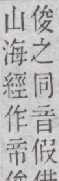 俊之同音假借
山海經作帝俊